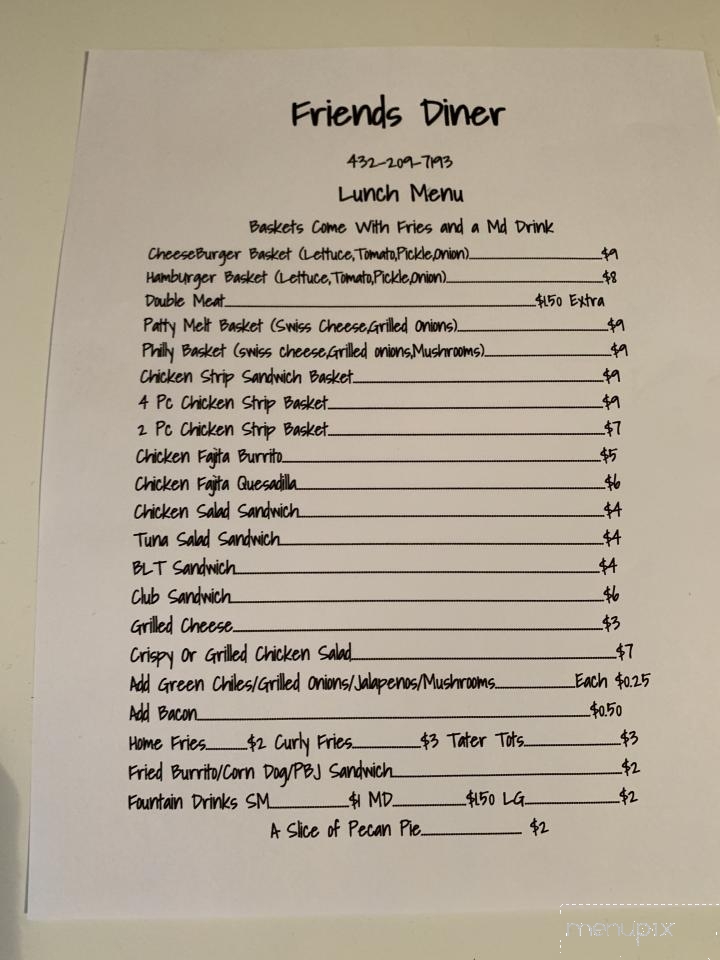 Friends Diner
432-209-7193
Lunch Menu
Baskets Come With Fries and a Md Drink
CheeseBurger Basket (Lettuce,Tomato,Pickle,Onion)..........$9
Hamburger Basket (Lettuce,Tomato,Pickle,Onion)..........$8
Double Meat..........$1.50 Extra
Patty Melt Basket (Swiss Cheese,Grilled Onions)..........$9
Philly Basket (swiss cheese,Grilled onions,Mushrooms)..........$9
Chicken Strip Sandwich Basket..........$9
4 Pc Chicken Strip Basket..........$9
2 Pc Chicken Strip Basket..........$7
Chicken Fajita Burrito..........$5
Chicken Fajita Quesadilla..........$6
Chicken Salad Sandwich..........$4
Tuna Salad Sandwich..........$4
BLT Sandwich..........$4
Club Sandwich..........$6
Grilled Cheese..........$3
Crispy Or Grilled Chicken Salad..........$7
Add Green Chiles/Grilled Onions/Jalapenos/Mushrooms..........Each $0.25
Add Bacon..........$0.50
Home Fries..........$2 Curly Fries..........$3 Tater Tots..........$3
Fried Burrito/Corn Dog/PBJ Sandwich..........$2
Fountain Drinks SM..........$1 MD..........$1.50 LG..........$2
A Slice of Pecan Pie.......... $2
menupix